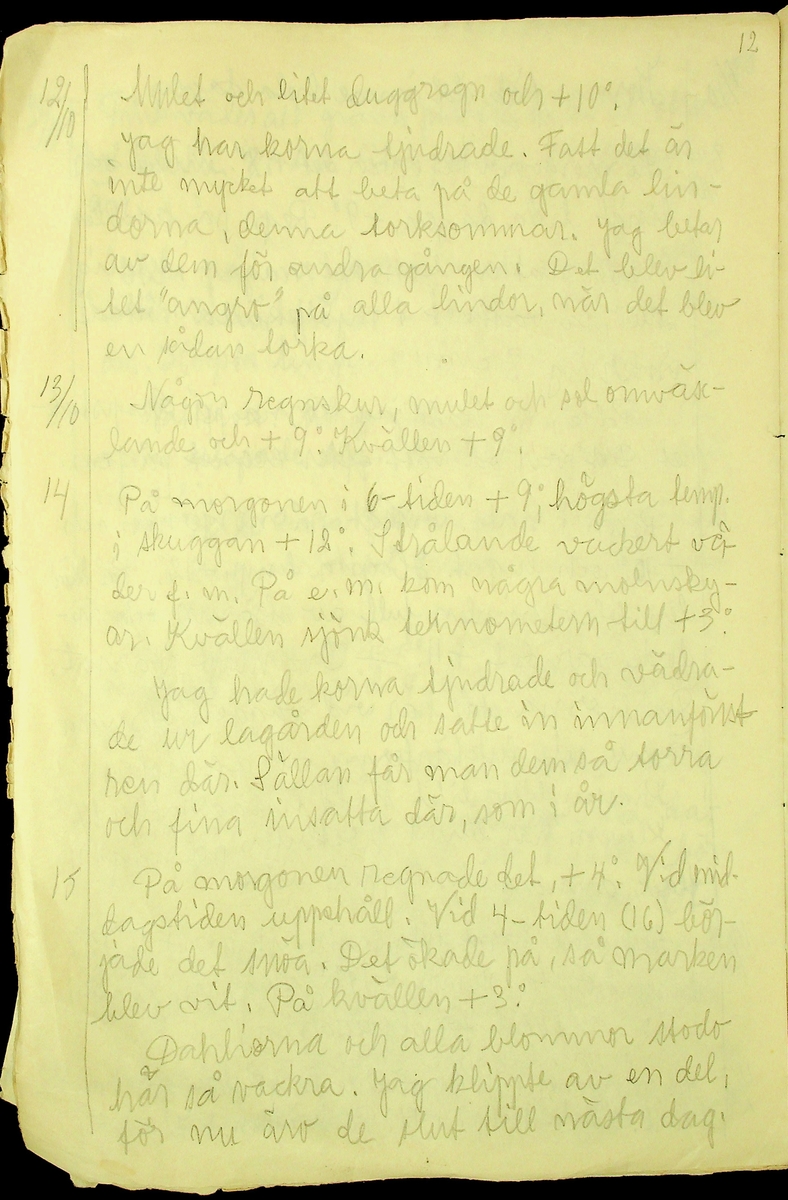 12
12/10 Mulet och litet duggregn och +10°.
Jag har korna tjudrade. Fast det är
inte mycket att beta på de gamla lin-
dorna, denna torksommar. Jag betar
av dem för andra gången. Det blev li-
tet "angro" på alla lindor, när det blev
en sådan torka.
13/10 Någon regnskur, mulet och sol omväx-
lande och +9°. Kvällen +9°.
14 På morgonen i 6-tiden +9°, högsta temp.
i skuggan +12°. Strålande vackert vä-
der f.m. På e.m. kom några molnsky-
ar. Kvällen sjönk termometern till +3°.
Jag hade korna tjudrade och vädra-
de ur lagården och satte in innanfönst-
ren där. Sällan får man dem så torra
och fina insatta där, som i år.
15 På morgonen regnade det, +4°. Vid mid-
dagstiden uppehåll. Vid 4-tiden (16) bör-
jade det snöa. Det ökade på, så marken
blev vit. På kvällen +3°.
Dahliorna och alla blommor stodo
här så vackra. Jag klippte av en del,
för nu äro de slut till nästa dag.